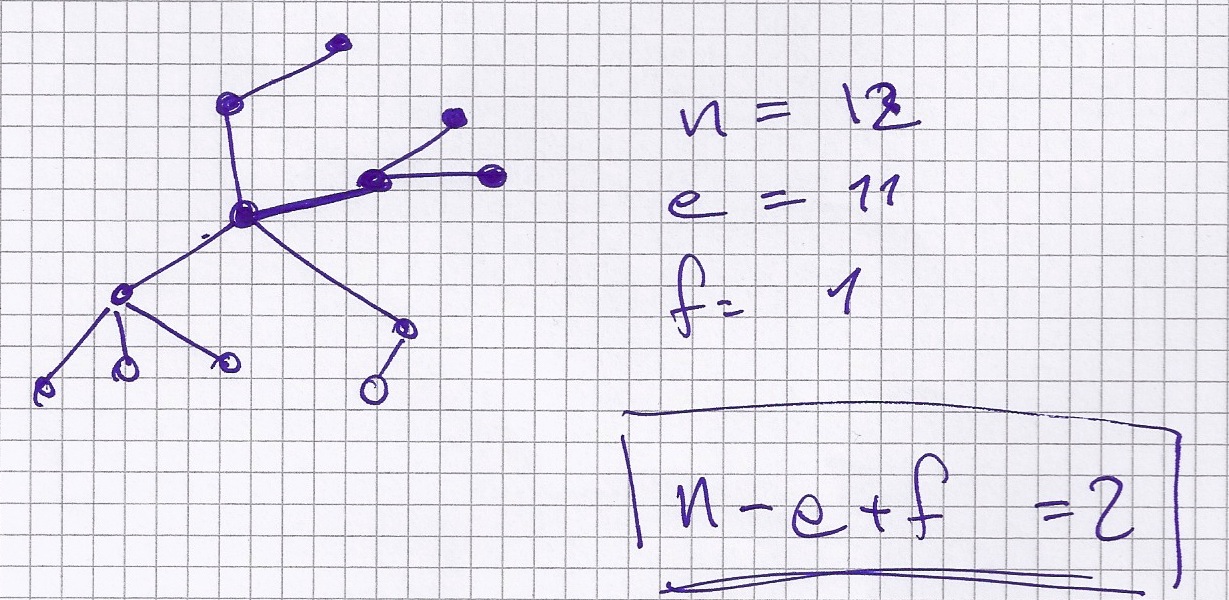 n = 12
e = 11
f = 1
n - e + f = 2